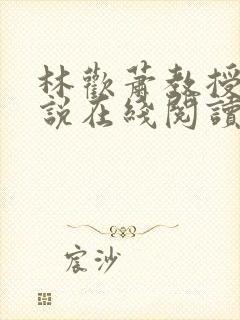 林歡蕭教授
說在綫閱讀
宸沙